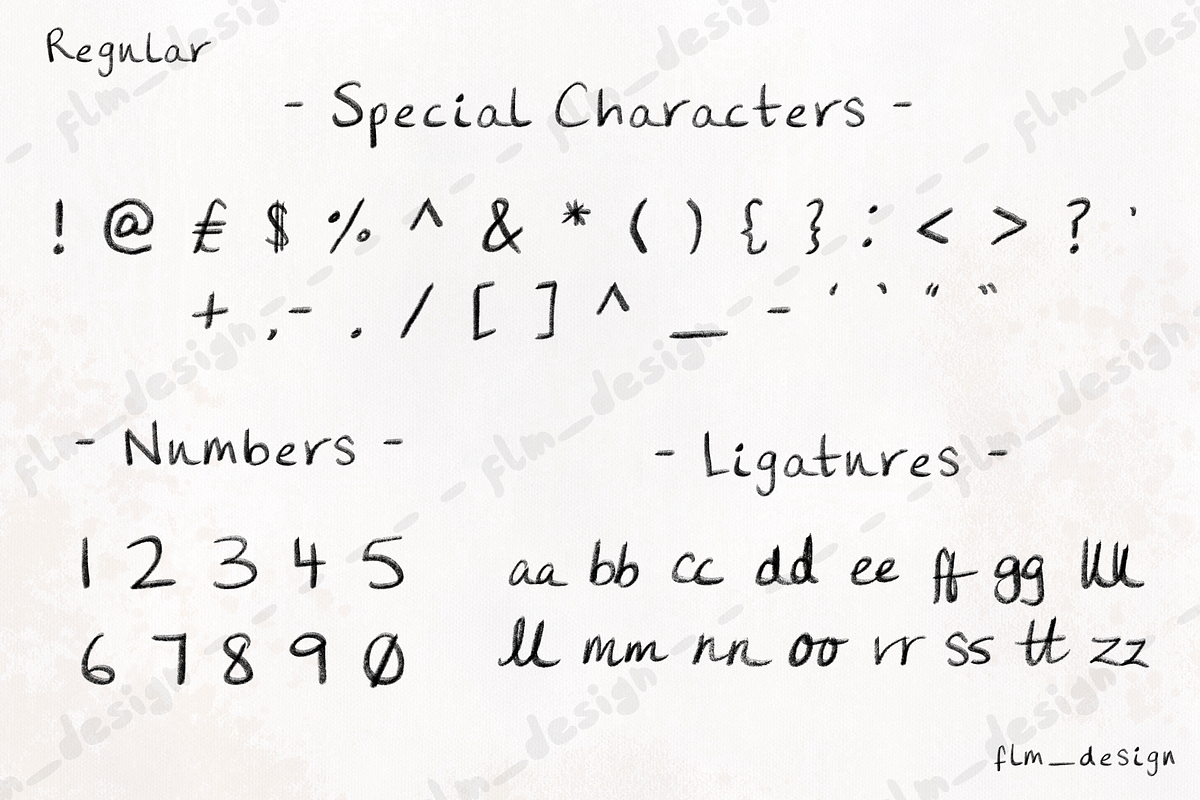 Regular
- Special Characters -
! @ £ $ % ^ & * ( ) { } : < > ? '
+ , - . / [ ] ^ _ - ‘ ’ “ ”
- Numbers -
1 2 3 4 5
6 7 8 9 0
- Ligatures -
aa bb cc dd ee ff gg lll
ll mm nn oo rr ss tt zz
flm_design